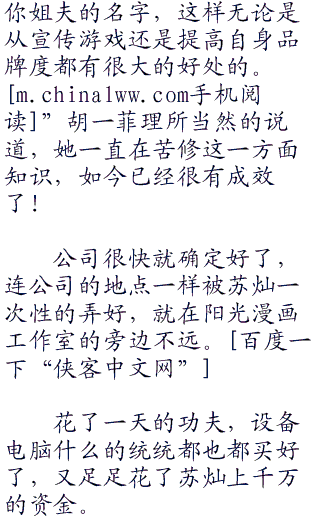 你姐夫的名字，这样无论是
从宣传游戏还是提高自身品
牌度都有很大的好处的。
[m.chinalww.com手机阅
读]”胡一菲理所当然的说
道，她一直在苦修这一方面
知识，如今已经很有成效
了！
公司很快就确定好了，
连公司的地点一样被苏灿一
次性的弄好，就在阳光漫画
工作室的旁边不远。[百度一
下“侠客中文网”]
花了一天的功夫，设备
电脑什么的统统都也都买好
了，又足足花了苏灿上千万
的资金。